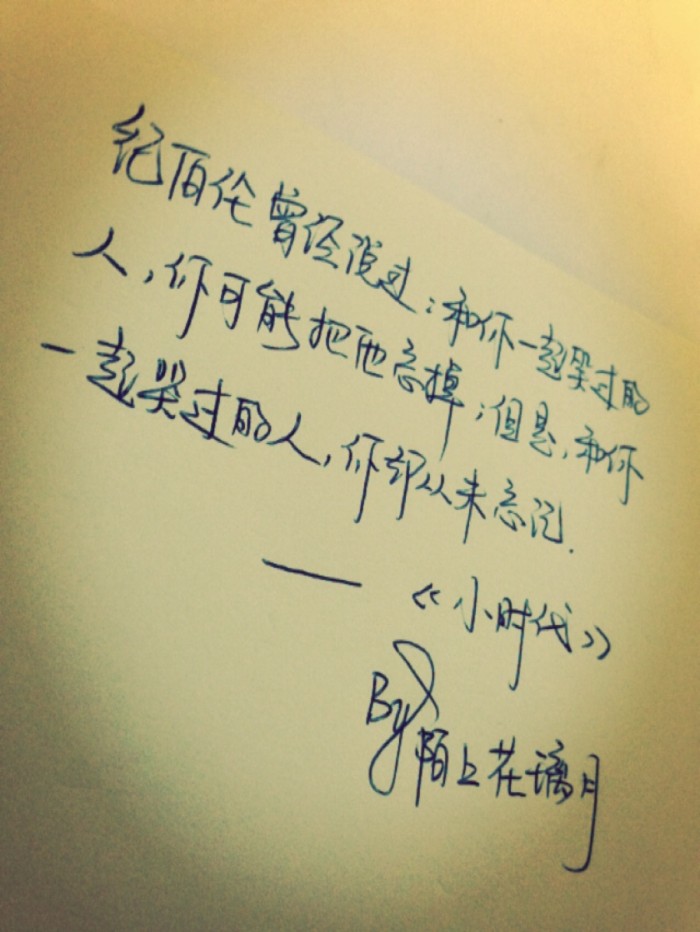 纪伯伦曾经说过：和你一起哭过的
人，你可能把他忘掉；但是，和你
一起哭过的人，你却从未忘记.
——《小时代》
By陌上花璃月